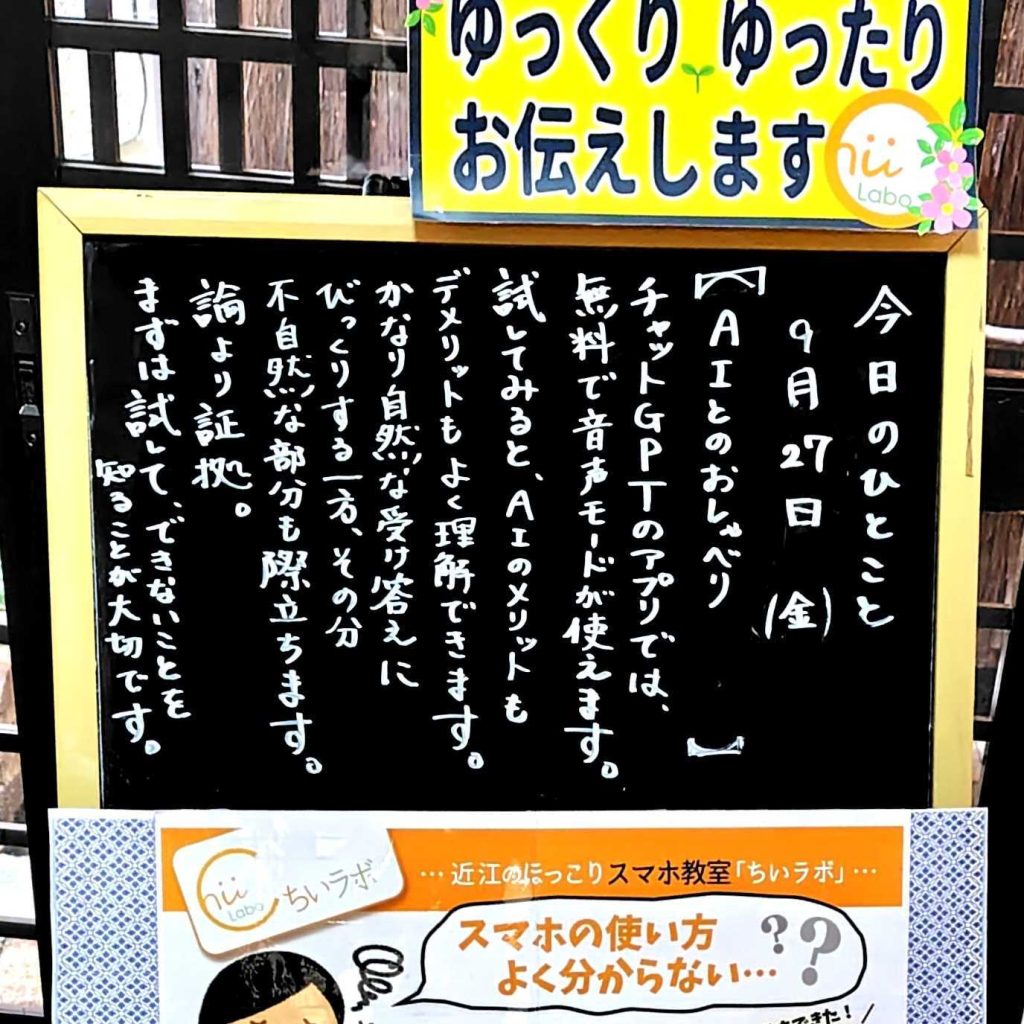 ゆっくり ゆったり
お伝えします
Chii
Labo
今日のひとこと
9月27日(金)
【AIとのおしゃべり】
チャットGPTのアプリでは、
無料で音声モードが使えます。
試してみると、AIのメリットも
デメリットもよく理解できます。
かなり自然な受け答えに
びっくりする一方、その分
不自然な部分も際立ちます。
論より証拠。
まずは試して、できないことを
知ることが大切です。
Chii
Labo
ちいラボ
…近江のほっこりスマホ教室「ちいラボ」…
スマホの使い方
よく分からない…??
できた!